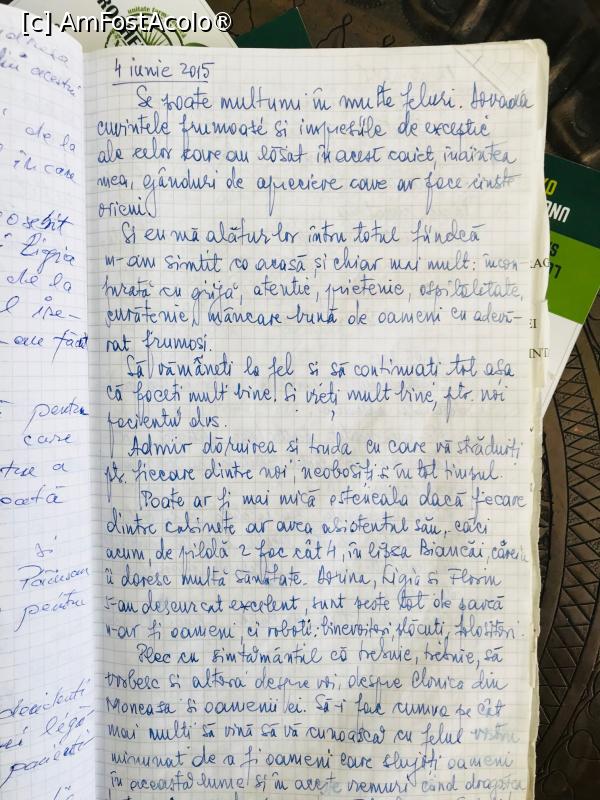 [c] AmFostAcolo®
4 iunie 2015
Se poate mulțumi în multe feluri. Dovadă
cuvintele frumoase și impresiile de excepție
ale celor care au lăsat în acest caiet, înaintea
mea, gânduri de apreciere care ar face cinste
oricui.
Și eu mă alătur lor întru totul fiindcă
m-am simțit ca acasă, și chiar mai mult: încon-
jurată cu grijă, atenție, prietenie, ospitalitate,
curățenie, mâncare bună de oameni cu adevă-
rat frumoși.
Să rămâneți la fel și să continuați tot așa
că faceți mult bine. Și vreți mult bine, ptr. noi
pacienții dvs.
Admir dăruirea și truda cu care vă străduiți
ptr. fiecare dintre noi, neobosiți și în tot timpul.
Poate ar fi mai mică osteneala dacă fiecare
dintre cabinete ar avea asistentul său, căci
acum, de pildă 2 fac cât 4, în lipsa Biancăi, căreia
îi doresc multă sănătate. Dorina, Ligia și Florin
s-au descurcat excelent, sunt peste tot de parcă
n-ar fi oameni, ci roboți: binevoitori plăcuți, folositori.
Plec cu simțământul că trebuie, trebuie, să
vorbesc și altora despre voi, despre Clinica din
Moneasa și oamenii ei. Să-i fac cumva pe cât
mai mulți să vină să vă cunoască cu felul vostru
minunat de a fi oameni care slujiți oameni
în această lume și în aceste vremuri când dragostea
de la
în care
osebit
Ligia
de la
pentru
care
și
pentru
pacienții